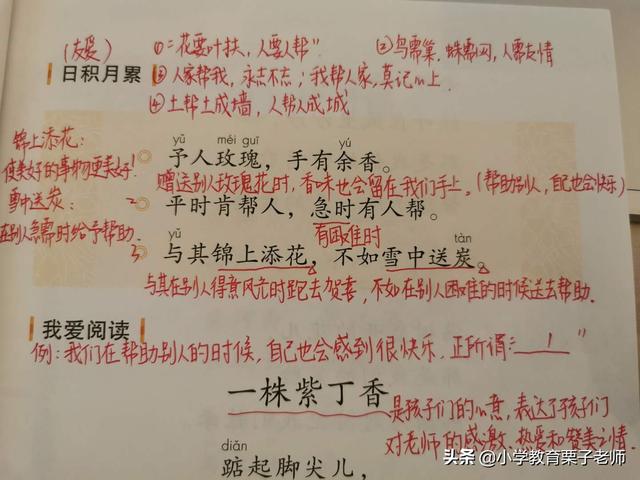 (友爱) ①“花要叶扶，人要人帮” ②鸟需巢，蛛需网，人需友情
日积月累 ③人家帮我，永志不忘；我帮人家，莫记心上
④土帮土成墙，人帮人成城
锦上添花：
使美好的事物更美好！
雪中送炭：
在别人急需时给予帮助.
yǔ méi guī yú
予人玫瑰，手有余香。
赠送别人玫瑰花时，香味也会留在我们手上。(帮助别人，自己也会快乐)
2 平时肯帮人，急时有人帮。
yǔ 有困难时 tàn
3 与其锦上添花，不如雪中送炭。
与其在别人得意风光时跑去贺喜，不如在别人困难的时候送去帮助.
我爱阅读
例：我们在帮助别人的时候，自己也会感到很快乐，正所谓“ 1 ”
一株紫丁香
是孩子们的心意，表达了孩子们
对老师的感激、热爱和赞美之情.
diǎn
踮起脚尖儿，
头条 @小学教育栗子老师